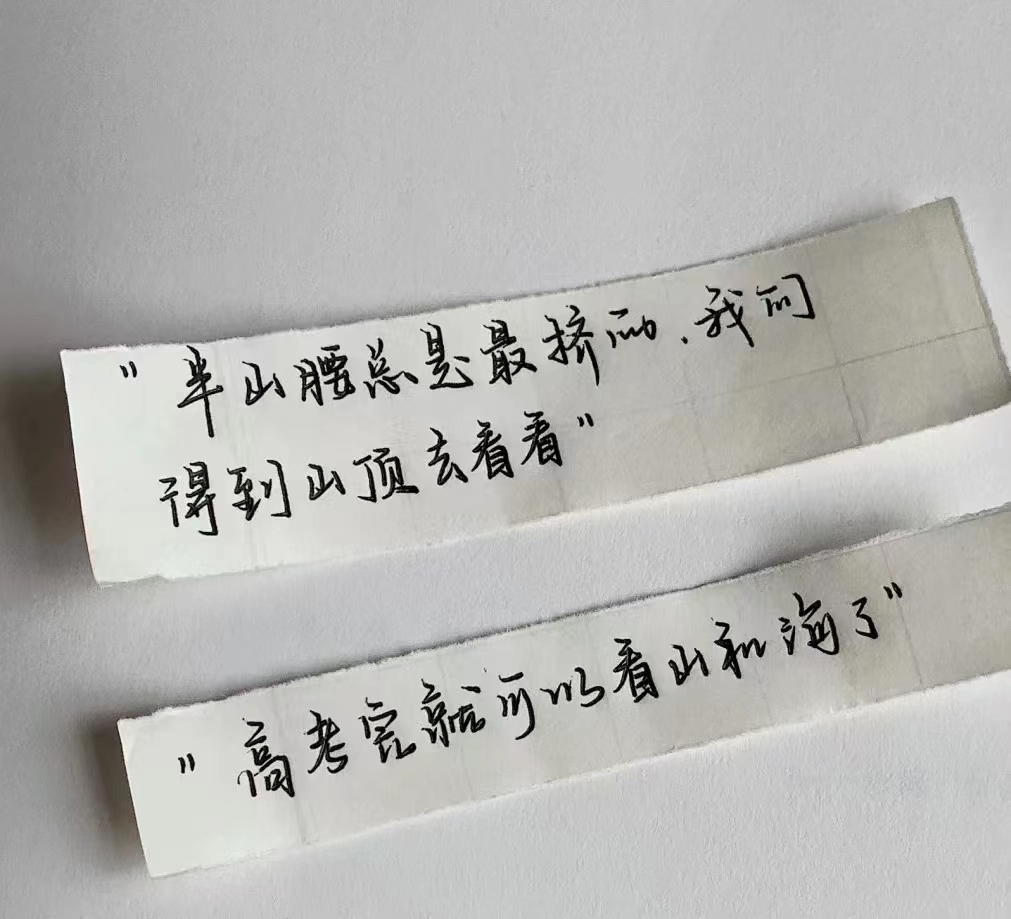 "半山腰总是最挤的.我们
得到山顶去看看"
"高考完就可以看山和海了"